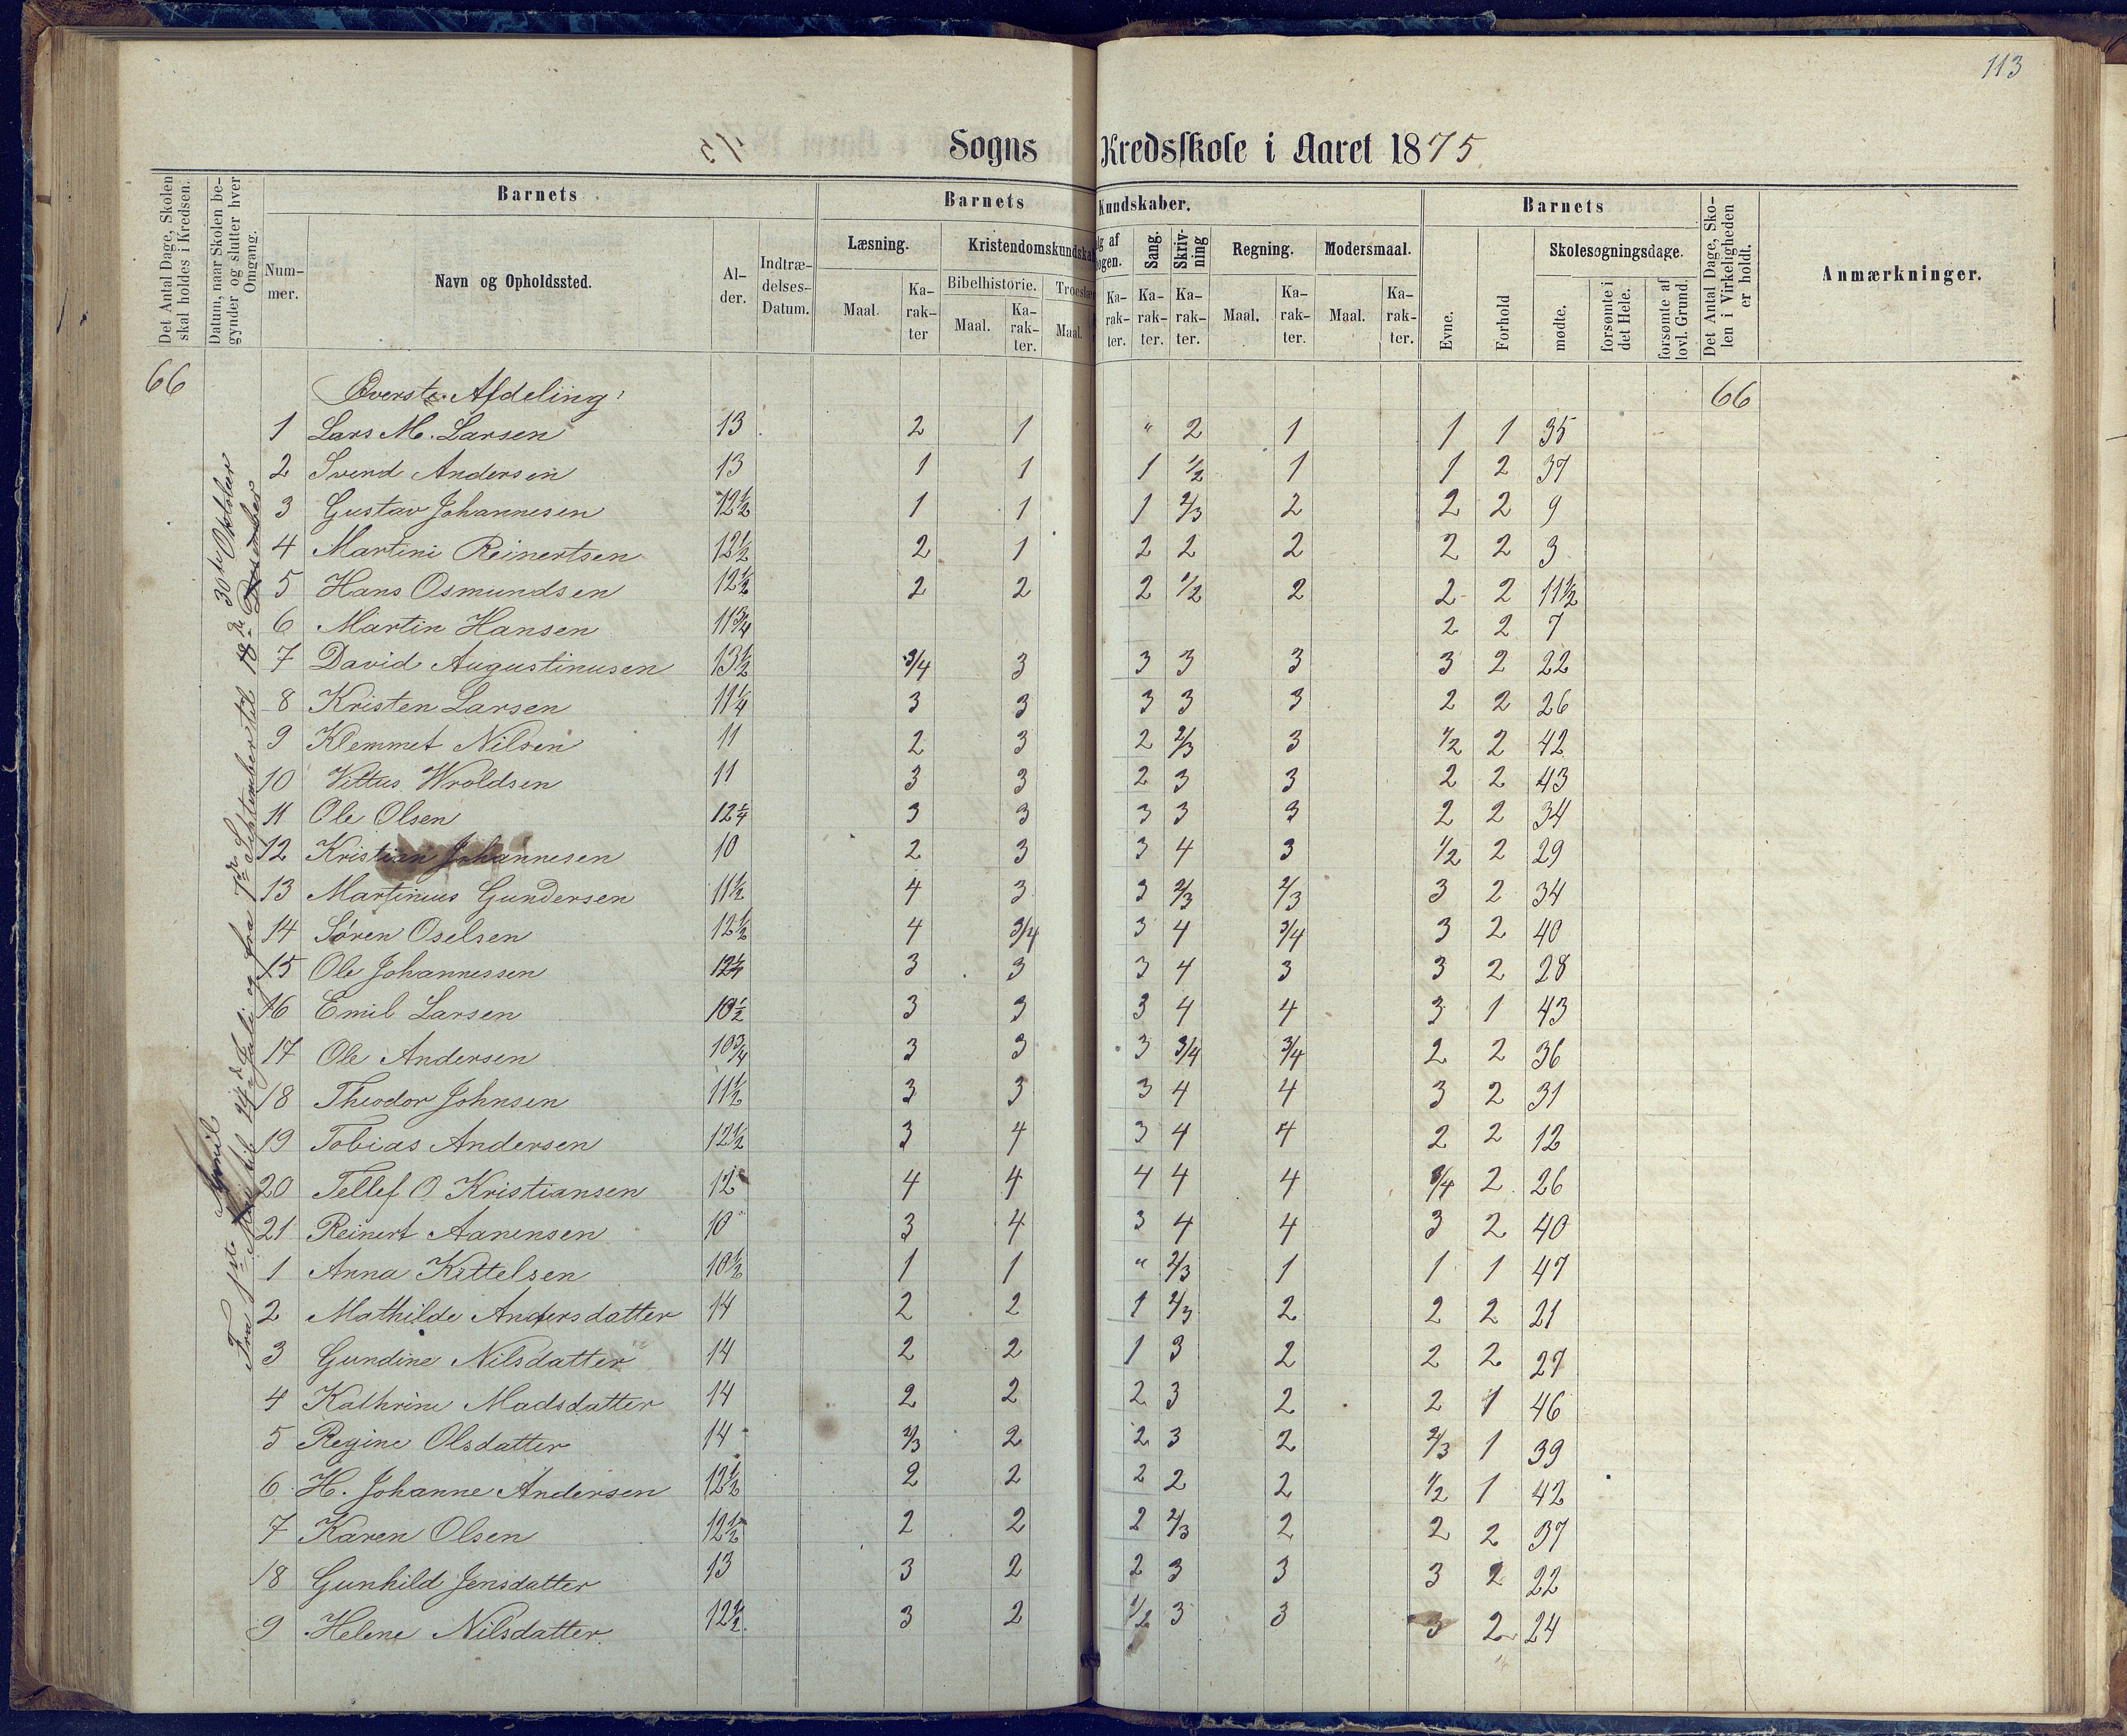 113
Sogns Kredsskole i Aaret 1875
Det Antal Dage, Skolen skal holdes i Kredsen.
Datum, naar Skolen be-gynder og slutter hver Omgang.
Barnets
Barnets Kundskaber.
Barnets
Det Antal Dage, Sko-len i Virkeligheden er holdt.
Anmærkninger.
Num-mer.
Navn og Opholdssted.
Al-der.
Indtræ-delses-Datum.
Læsning.
Kristendomskundska
lg af ogen.
Sang.
Skriv-ning
Regning.
Modersmaal.
Evne.
Forhold
Skolesøgningsdage.
Maal.
Ka-rak-ter
Bibelhistorie.
Maal.
Ka-rak-ter.
Troeslæ
Maal.
Ka-rak-ter.
Ka-rak-ter.
Ka-rak-ter.
Maal.
Ka-rak-ter.
Maal.
Ka-rak-ter.
mødte.
forsømte i det Hele.
forsømte af lovl. Grund.
66 Øverste Afdeling: 66
30te Oktober
Fra 1ste Mai til 14de Juli og fra 7de September til 18de Desember
April
1 Lars M. Larsen 13 2 1 " 2 1 1 1 35
2 Svend Andersen 13 1 1 1 1/2 1 1 2 37
3 Gustav Johannesen 12½ 1 1 1 2/3 2 2 2 9
4 Martini Reinertsen 12½ 2 1 2 2 2 2 2 3
5 Hans Osmundsen 12½ 2 2 2 1/2 2 2 2 11½
6 Martin Hansen 11¾ 2 2 7
7 David Augustinusen 13½ 3/4 3 3 3 3 3 2 22
8 Kristen Larsen 11¼ 3 3 3 3 3 2 2 26
9 Klemmet Nilsen 11 2 3 2 2/3 3 1/2 2 42
10 Vittus Wroldsen 11 3 3 2 3 3 2 2 43
11 Ole Olsen 12¼ 3 3 3 3 3 2 2 34
12 Kristian Johannesen 10 2 3 3 4 3 1/2 2 29
13 Martinius Gundersen 11½ 4 3 3 2/3 2/3 3 2 34
14 Søren Oselsen 12½ 4 3/4 3 4 3/4 3 2 40
15 Ole Johannessen 12¼ 3 3 3 4 3 3 2 28
16 Emil Larsen 10½ 3 3 3 4 4 3 1 43
17 Ole Andersen 10¾ 3 3 3 3/4 3/4 2 2 36
18 Theodor Johnsen 11½ 3 3 3 4 4 3 2 31
19 Tobias Andersen 12½ 3 4 3 4 4 2 2 12
20 Tellef O Kristiansen 12 4 4 4 4 4 3/4 2 26
21 Reinert Aanensen 10 3 4 3 4 4 3 2 40
1 Anna Kittelsen 10½ 1 1 " 2/3 1 1 1 47
2 Mathilde Andersdatter 14 2 2 1 2/3 2 2 2 21
3 Gundine Nilsdatter 14 2 2 1 3 2 2 2 27
4 Kathrine Madsdatter 14 2 2 2 3 2 2 1 46
5 Regine Olsdatter 14 2/3 2 2 3 2 2/3 1 39
6 H. Johanne Andersen 12½ 2 2 2 2 2 1/2 1 42
7 Karen Olsen 12½ 2 2 2 2/3 2 2 2 37
8 Gunhild Jensdatter 13 3 2 2 3 3 3 2 22
9 Helene Nilsdatter 12½ 3 2 1/2 3 3 3 2 24